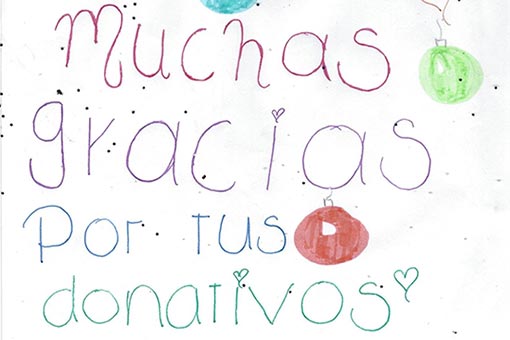 muchas
gracias
Por tus
donativos